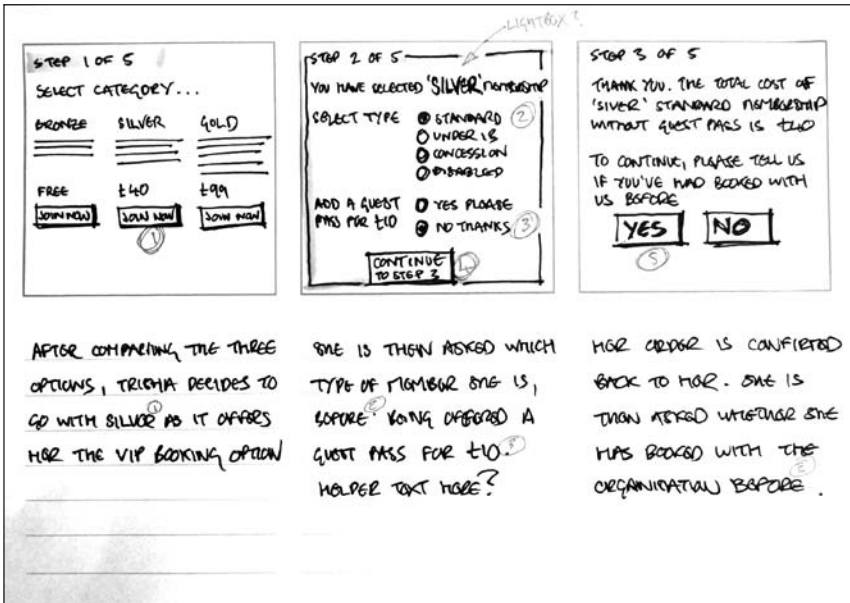 LIGHTBOX?
STEP 1 OF 5
SELECT CATEGORY...
BRONZE SILVER GOLD
FREE £40 £99
JOIN NOW JOIN NOW JOIN NOW
1
STEP 2 OF 5
YOU HAVE SELECTED 'SILVER' MEMBERSHIP
SELECT TYPE STANDARD 2
UNDER 18
CONCESSION
DISABLED
ADD A GUEST YES PLEASE
PASS FOR £10 NO THANKS 3
CONTINUE 4
TO STEP 3
STEP 3 OF 5
THANK YOU. THE TOTAL COST OF
'SIVER' STANDARD MEMBERSHIP
WITHOUT GUEST PASS IS £40
TO CONTINUE, PLEASE TELL US
IF YOU'VE HAD BOOKED WITH
US BEFORE
YES NO
5
AFTER COMPARING THE THREE
OPTIONS, TRISHA DECIDES TO
GO WITH SILVER 1 AS IT OFFERS
HER THE VIP BOOKING OPTION
SHE IS THEN ASKED WHICH
TYPE OF MEMBER SHE IS,
BEFORE 2 BEING OFFERED A
GUEST PASS FOR £10. 3
HELPER TEXT HERE?
HER ORDER IS CONFIRMED
BACK TO HER. SHE IS
THEN ASKED WHETHER SHE
HAS BOOKED WITH THE
ORGANISATION BEFORE.